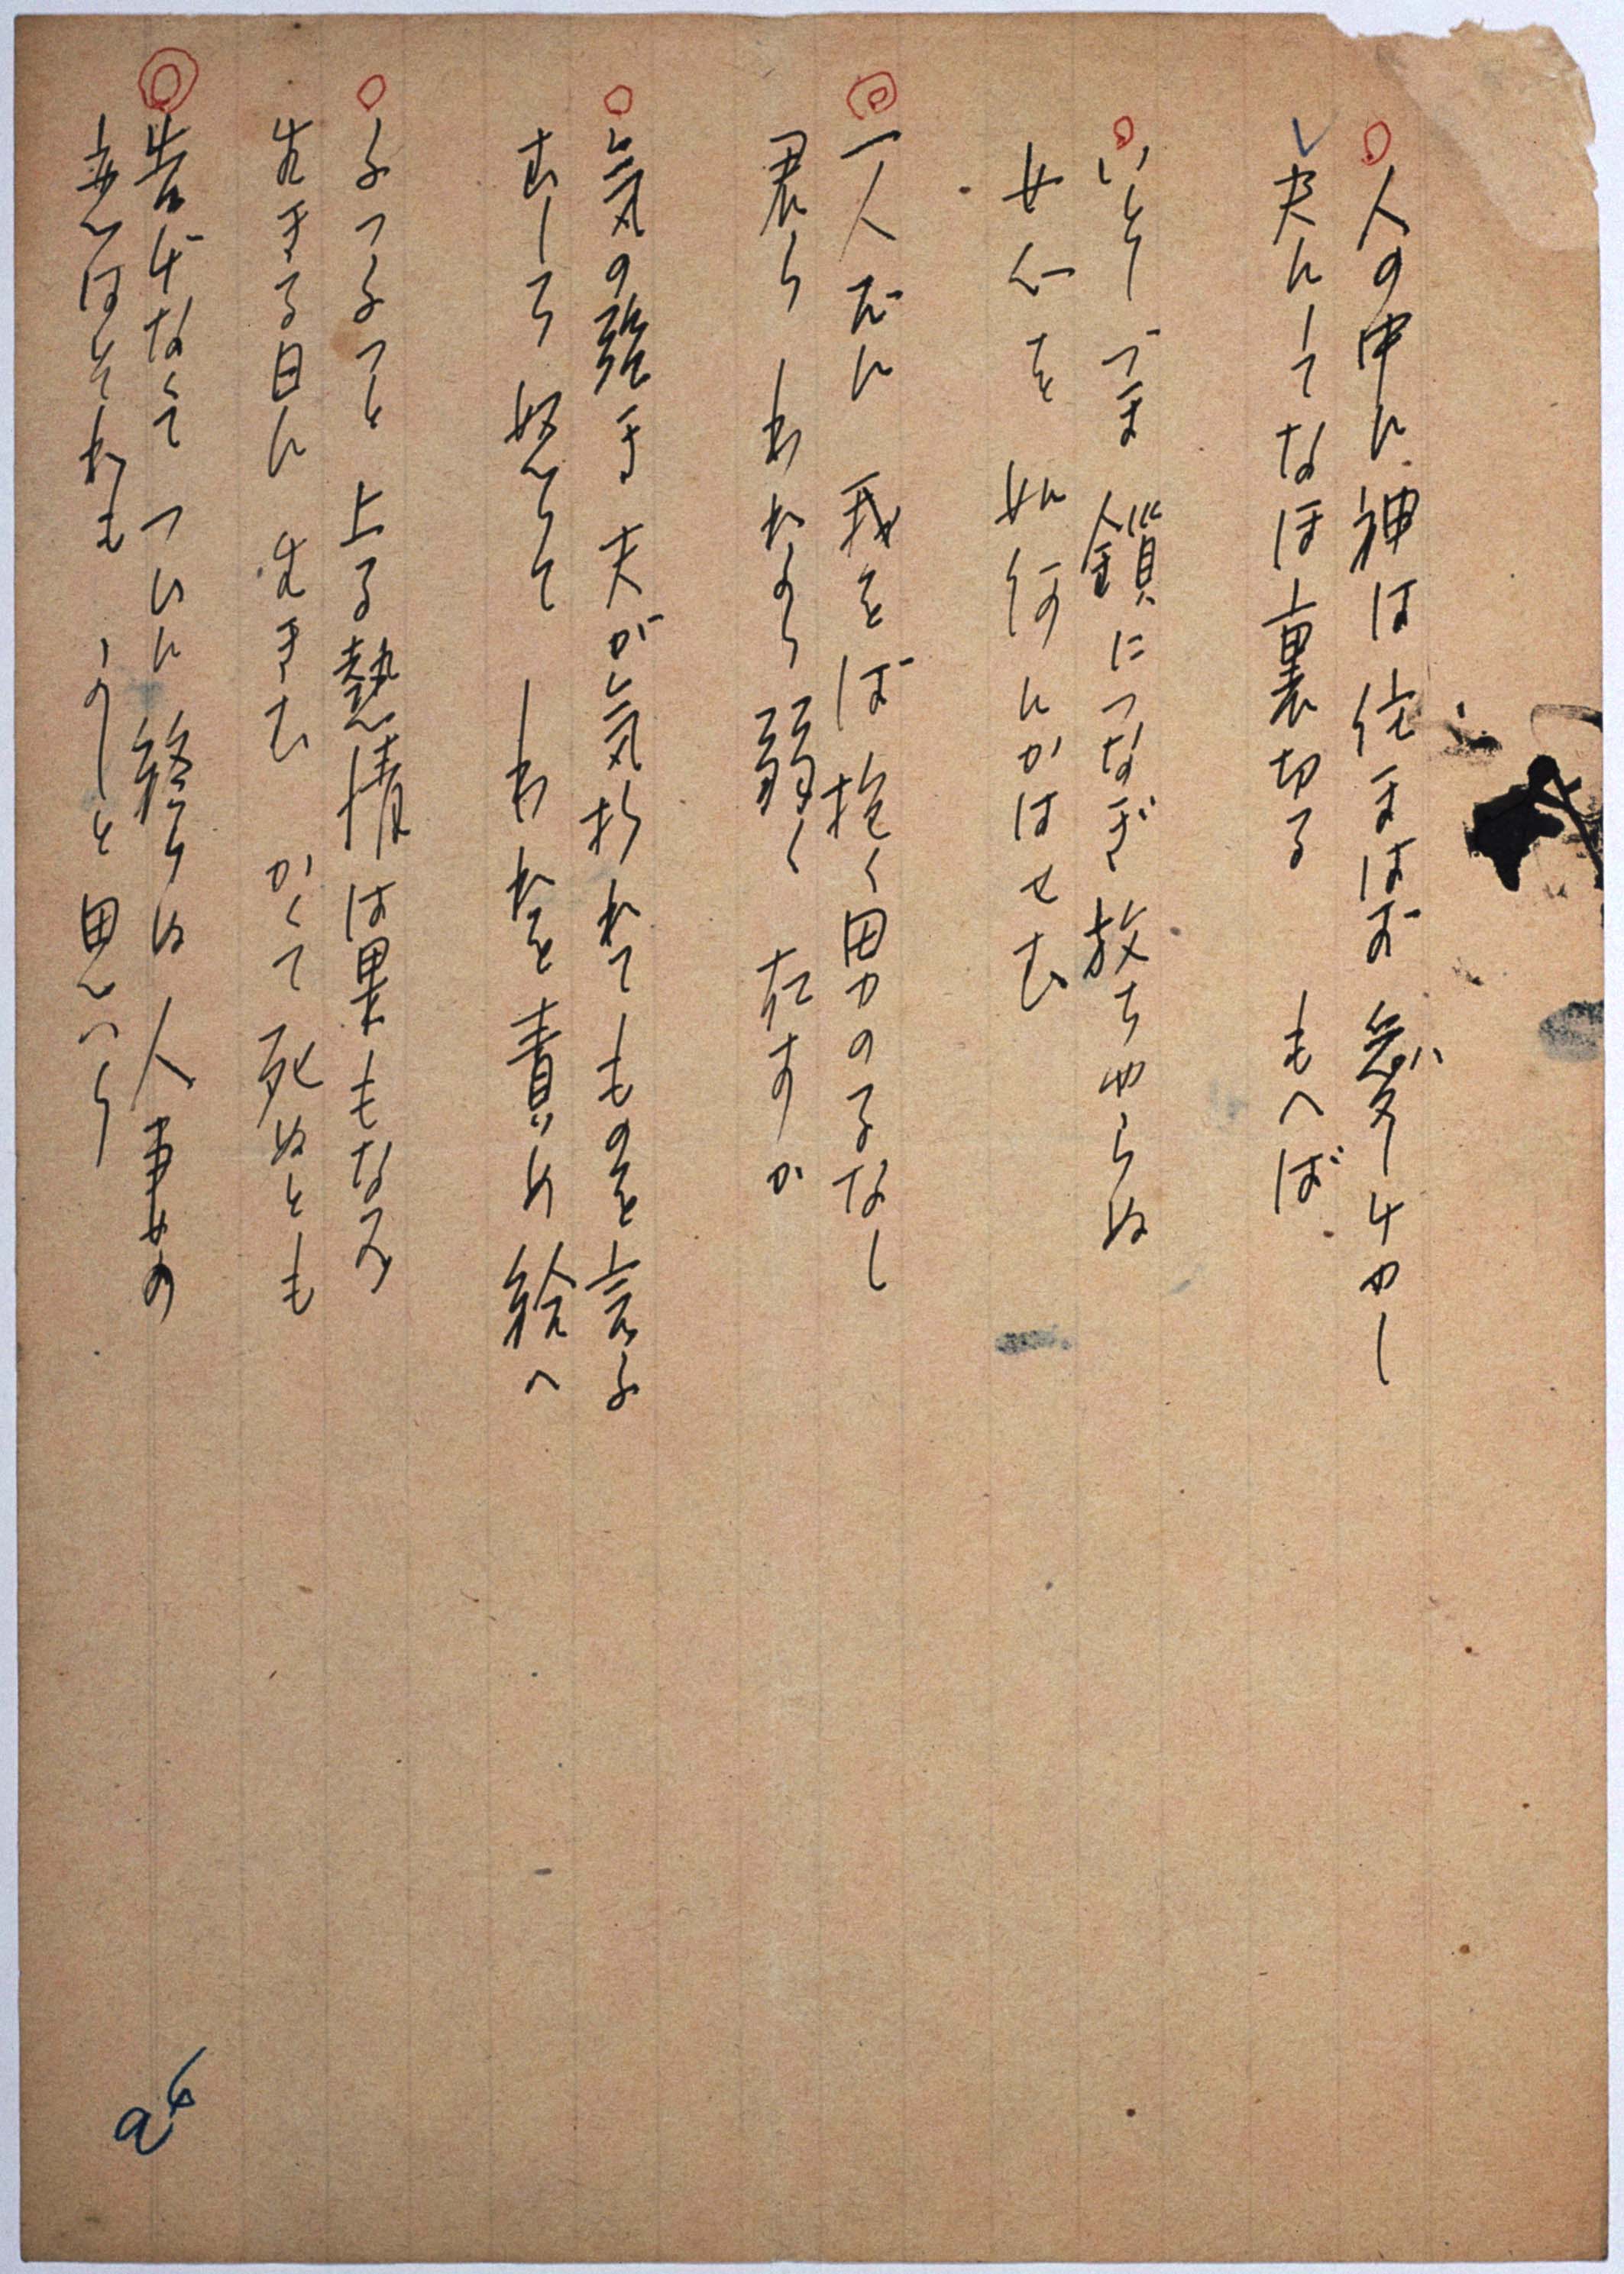 人の中に神は住まはず愛しけやし
夫にしてなほ裏切る もへば
いとしづま 鎖につなぎ放ちやらぬ
女心を 如何にかはせむ
一人だに 我をば抱く男の子なし
君ら われより弱く 在すか
気の強き夫が気折れてものを言ふ
むしろ怒りて われを責め給へ
ふつふつと 上る熱情は果もなみ
生きる日に 生きむ かくて死ぬとも
告げなくて つひに終らぬ 人妻の
恋はそれも よしと思へり